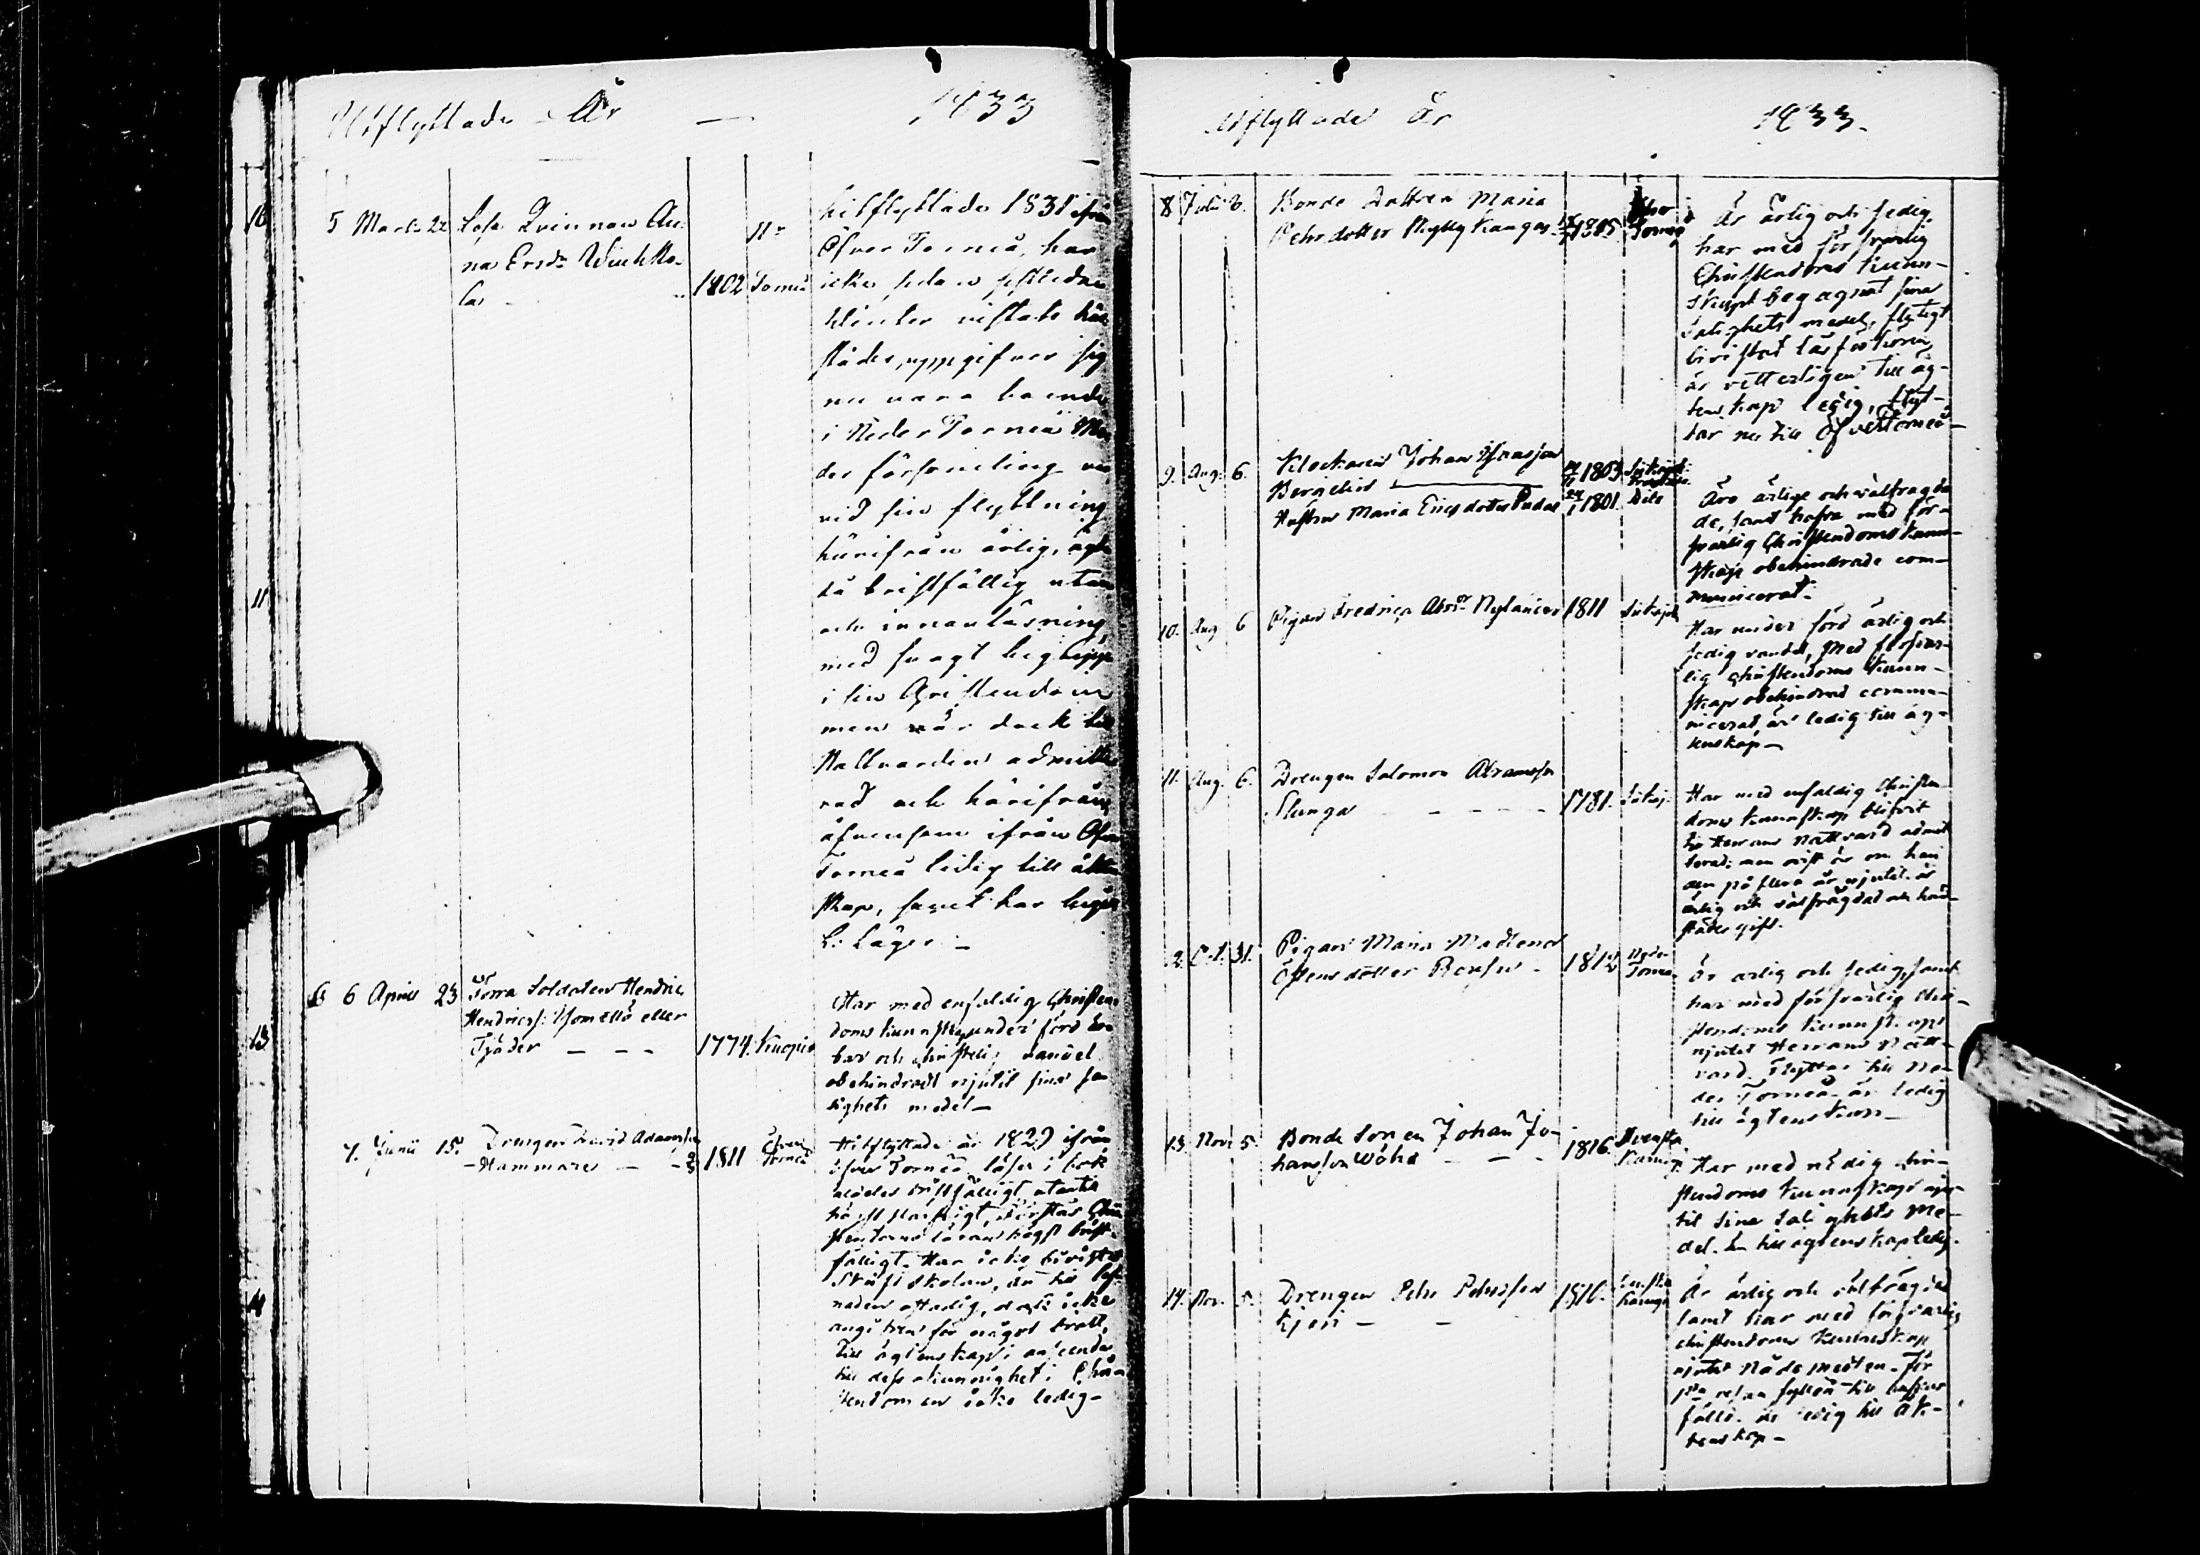 Utflyttade År — 1833
5 Marti 22 Lösa Qvinnan An-
na Ersdr
1802 Torneå
hitflyttade 1831 ifrån
Öfver Torneå, har
icke sedan sistledne
Winter vistats här
städes, uppgifver sig
nu vara boende
i Neder Torneå Mo-
der församling var
vid sin flyttning
härifrån ärlig,
bristfällig utan
och innanläsning,
med svagt begrepp
i sin Christendom
men var dock till
Nattvarden admitte-
rad och härifrån
äfvensom ifrån Öfver
Torneå ledig till äkten-
skap, samt har
L: Läger.
6 6 April 23 Förra Soldaten Hendric
Hendricss: eller
Tjäder — — — 1774. Kuopio
Har med enfaldig Christen-
doms kunnskap under förd är-
bar och christelig vandel
obehindradt njutit sina sa-
lighets medel —
7. Junii 15. Drengen David Adamsson
Hammare — — 1811 Öfver Torneå
Hitflyttade år 1829 ifrån
Öfver Torneå läser i bok
bristfälligt, utantil
förstår Chri-
stendoms läran högst brist-
fälligt. Har icke bivistat
Skriftskolan, är till lef-
naden ostadig, dock icke
för något brott,
till ägtenskap i anseende
till dess okunnighet i Chri-
stendomen icke ledig —
10
11
13
14
Utflyttade År 1833.
8 Julii 8. Bonde Dottren Maria
Pehrsdotter Kyllykangas 1805 Öfver Torneå
Är ärlig och sedig,
har med försvarlig
Christendoms kunn-
skap begagnat sina
Salighets medel, flitigt
bivistat läsförhören,
är vetterligen till äg-
tenskap ledig, flyt-
tar nu till Öfvertorneå —
9. Aug. 6. Klockaren Johan Isacsson
Bergelin 1803
Hustru Maria Ericsdotter Pudas 1801.
Äro ärlige och välfrägda-
de, samt hafva med för-
svarlig Christendoms kunn-
skap obehindrade com-
municerat.
10. Aug 6 Pigan Fredrica Abrsdr Nylander 1811
Har under förd ärlig och
sedig vandel, med försvar-
lig Christendoms kunn-
skap obehindrad commu-
nicerat, är ledig till äg-
tenskap —
11. Aug. 6. Drengen Salomon Abramsson
Slunga — — — — 1781.
Har med enfaldig Christen-
doms kunnskap blifvit
till Herrans Nattvard admit-
terad: men ovist är om han
den på flera år njutit. är
ärlig och välfrägdad och här-
städes gift.
12. Oct. 31. Pigan Maria Madlena
Östensdotter — 1812 Neder Torneå
Är ärlig och sedig, samt
har med försvarlig Chri-
stendoms kunnskap
njutit Herrans Natt-
vard. Flyttar till Ne-
der Torneå. är ledig
till ägtenskap —
13 Nov. 5. Bonde Sonen Johan Jo-
hansson — — — 1816.
Har med nödig Chri-
stendoms kunnskap
til sina Salighets me-
del. är till ägtenskap ledig.
14. Nov. 5. Drengen Pehr Pehrsson
— — 1816. Karunge
Är ärlig och välfrägdad
samt har med försvarlig
christendoms kunnskap
njutit Nådemedlen. För
är ledig till äk-
tenskap —